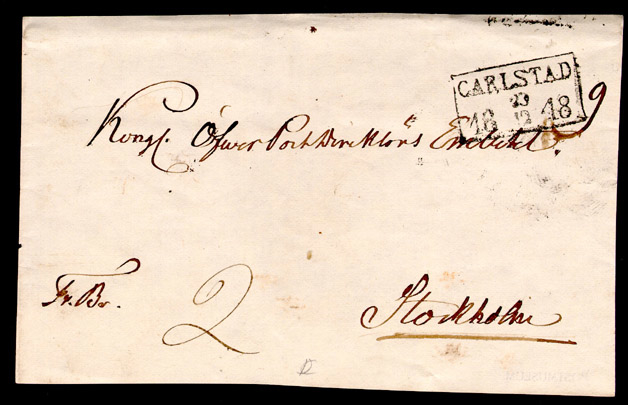 CARLSTAD
23
18 12 48
9
Kongl. Öfwer Post Direktörs Embetet
Fr. Br.
2
Stockholm